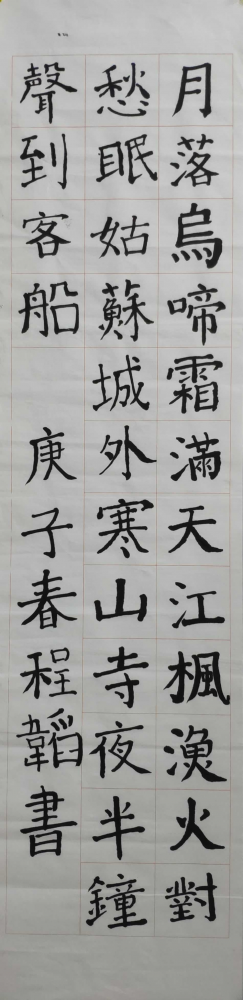 月落烏啼霜滿天江楓漁火對
愁眠姑蘇城外寒山寺夜半鐘
聲到客船 庚子春程韜書